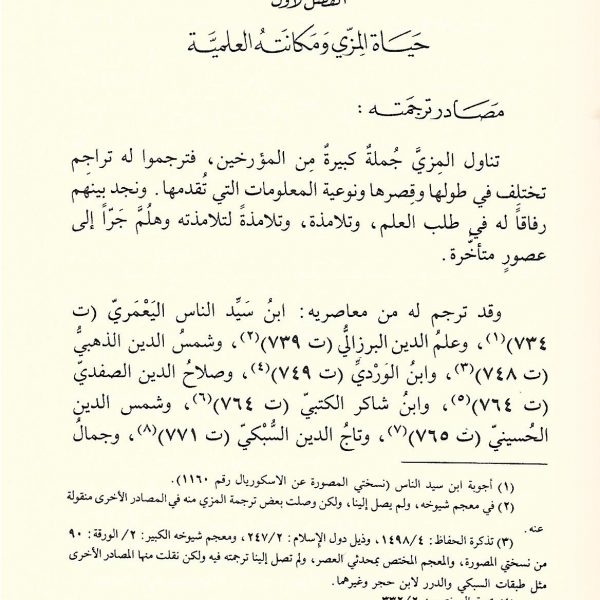 الفصل الأول
حَيَاة المِزّي وَمَكانَتهُ العلميَّة
مَصَادر ترجمَته :
تناول المِزيَّ جُملةٌ كبيرةٌ مِن المؤرخين، فترجموا له تراجِم
تختلف في طولها وقِصرها ونوعية المعلومات التي تُقدمها. ونجد بينهم
رفاقاً له في طلب العلم، وتلامذة، وتلامذةً لتلامذته وهلُمَّ جَرّاً إلى
عصورٍ متأخِّرة.
وقد ترجم له من معاصريه: ابنُ سَيِّد الناس اليَعْمَريّ (ت
٧٣٤)(١)، وعلمُ الدين البرزاليُّ (ت ٧٣٩)(٢)، وشمسُ الدين الذهبيُّ
(ت ٧٤٨)(٣)، وابنُ الوَرْديِّ (ت ٧٤٩)(٤)، وصلاحُ الدين الصفديّ
(ت ٧٦٤)(٥)، وابنُ شاكر الكتبيّ (ت ٧٦٤)(٦)، وشمس الدين
الحُسينيّ (ت ٧٦٥)(٧)، وتاجُ الدين السُّبْكيّ (ت ٧٧١)(٨)، وجمالُ
(١) أجوبة ابن سيد الناس (نسختي المصورة عن الاسكوريال رقم ١١٦٠).
(٢) في معجم شيوخه، ولم يصل إلينا، ولكن وصلت بعض ترجمة المزي منه في المصادر الأخرى منقولة
عنه.
(٣) تذكرة الحفاظ: ١٤٩٨/٤، وذيل دول الإسلام: ٢٤٧/٢، ومعجم شيوخه الكبير: ٢/ الورقة: ٩٠
من نسختي المصورة، والمعجم المختص بمحدثي العصر، ولم تصل إلينا ترجمته فيه ولكن نقلت منها المصادر الأخرى
مثل طبقات السبكي والدرر لابن حجر وغيرهما.